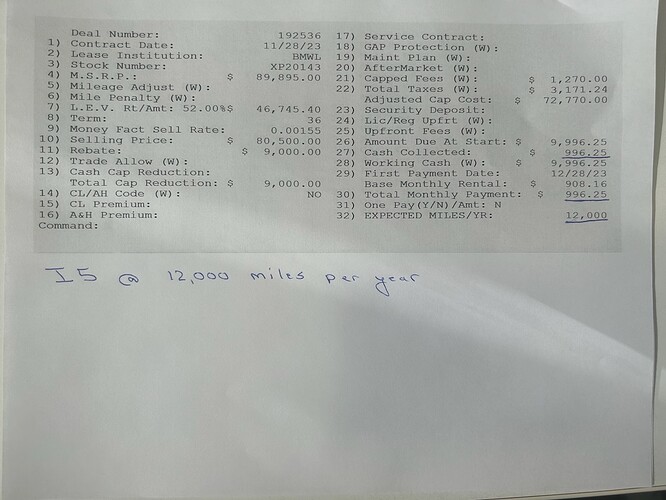 Deal Number: 192536
1) Contract Date: 11/28/23
2) Lease Institution: BMWL
3) Stock Number: XP20143
4) M.S.R.P.: $ 89,895.00
5) Mileage Adjust (W):
6) Mile Penalty (W):
7) L.E.V. Rt/Amt: 52.00%$ 46,745.40
8) Term: 36
9) Money Fact Sell Rate: 0.00155
10) Selling Price: $ 80,500.00
11) Rebate: $ 9,000.00
12) Trade Allow (W):
13) Cash Cap Reduction:
Total Cap Reduction: $ 9,000.00
14) CL/AH Code (W): NO
15) CL Premium:
16) A&H Premium:
Command:
17) Service Contract:
18) GAP Protection (W):
19) Maint Plan (W):
20) AfterMarket (W):
21) Capped Fees (W): $ 1,270.00
22) Total Taxes (W): $ 3,171.24
Adjusted Cap Cost: $ 72,770.00
23) Security Deposit:
24) Lic/Reg Upfrt (W):
25) Upfront Fees (W):
26) Amount Due At Start: $ 9,996.25
27) Cash Collected: 996.25
28) Working Cash (W): $ 9,996.25
29) First Payment Date: 12/28/23
Base Monthly Rental: $ 908.16
30) Total Monthly Payment: $ 996.25
31) One Pay(Y/N)/Amt: N
32) EXPECTED MILES/YR: 12,000
I5 @ 12,000 miles per year